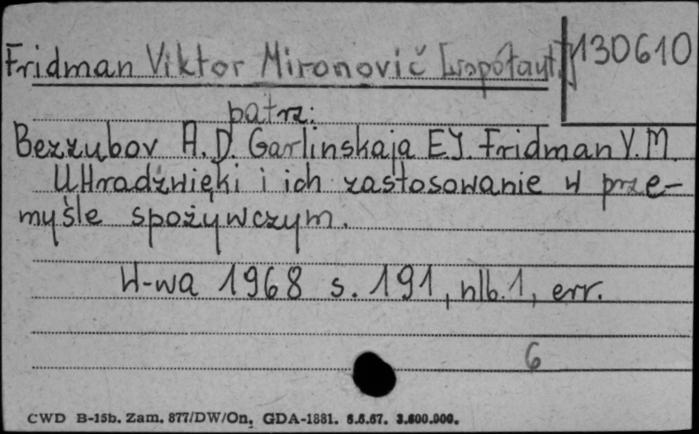 Fridman Viktor Mironovič [współaut.] 130610
patrz:
Bezzubov A.D. Garlinskaja E.J. Fridman V.M.
Ultradźwięki i ich zastosowanie w prze-
myśle spożywczym.
W-wa 1968 s. 191, nlb. 1, err.
6
CWD B-15b. Zam. 877/DW/On, GDA-1881. 5.5.67. 3.600.000.